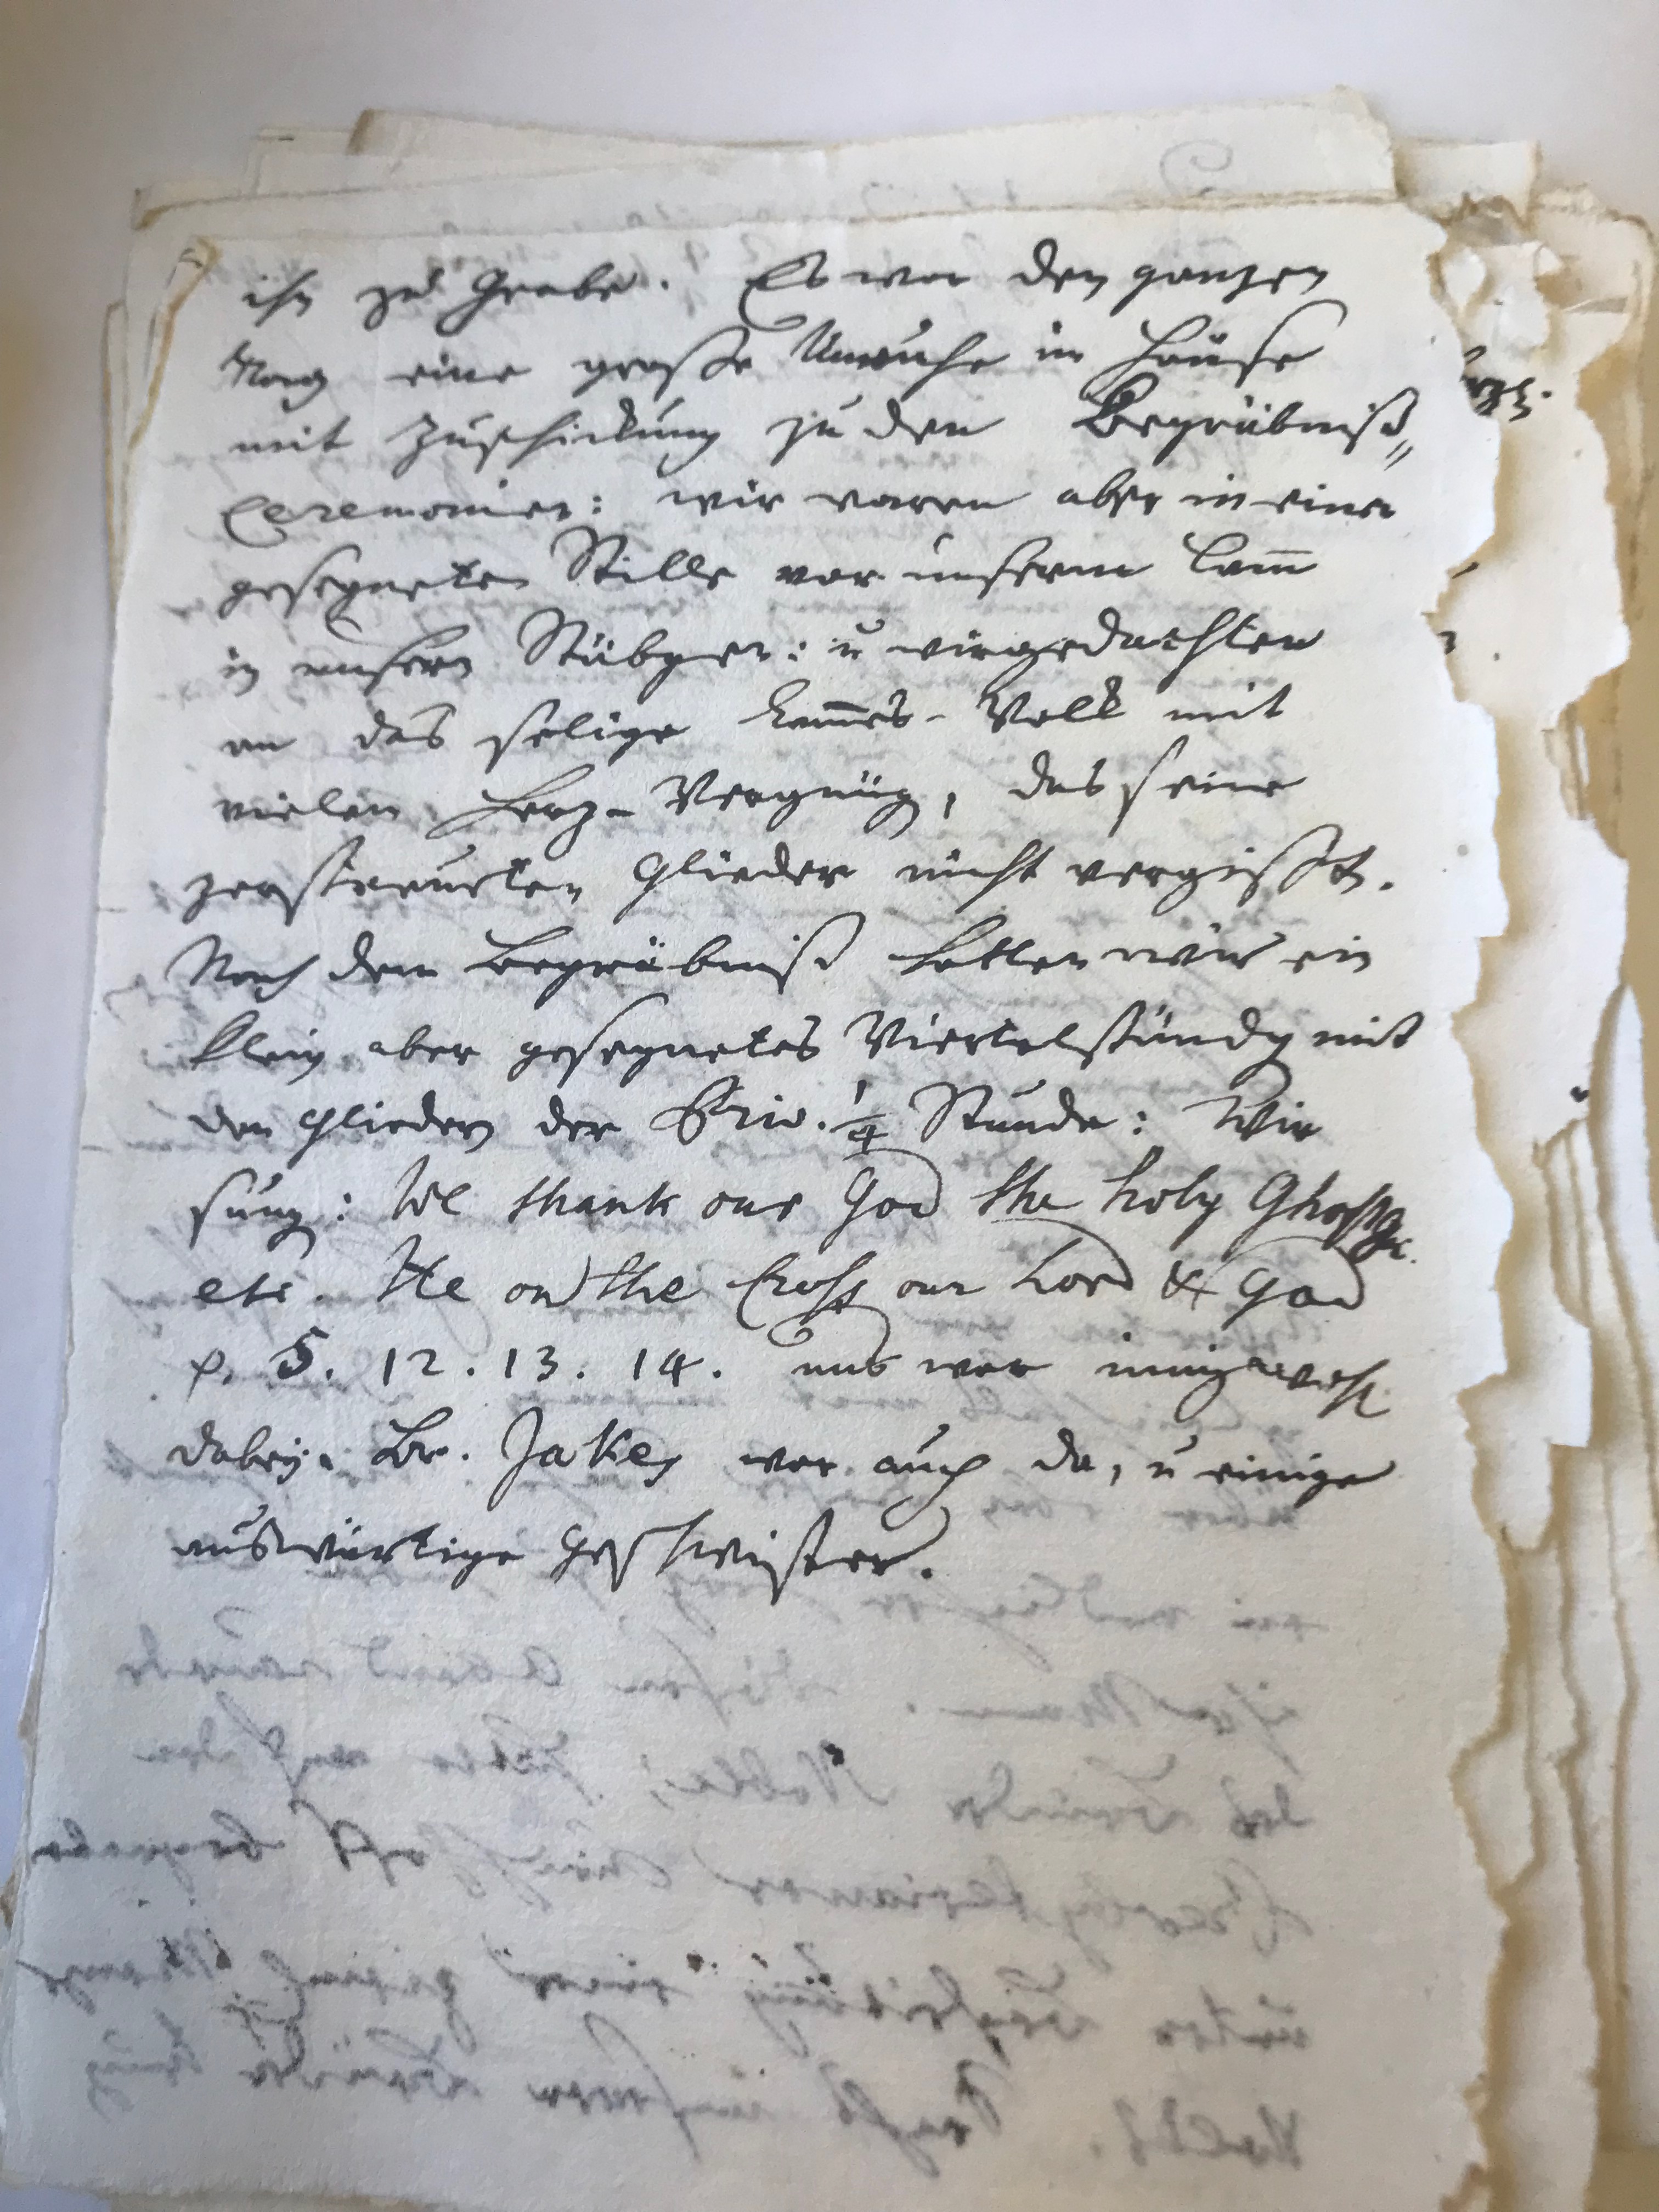 ihn zu Grabe. Es war den ganzen
Tag eine große Unruhe im Hause
mit Zuschickung zu den Begräbniß„
Ceremonien: wir waren aber in einer
gesegneten Stille vor unserm Lam̅
in unsern Stübgen: u wir gedachten
an das selige Lam̅es-Volk mit
vielen Herz-Vergnüg, das seine
zerstreueten Glieder nicht vergißt.
Nach dem Begräbniß hatten wir ein
klein aber gesegnetes Viertelstündg mit
den Gliedern der Priv. 1/4 Stunde: Wir
sung: We thank our God the holy Ghost &c.
etc. He on the Cross our Lord & God
p. 5. 12. 13. 14. uns war innig wohl
dabey. Br. Jakes war auch da, u einige
auswärtige Geschwister.